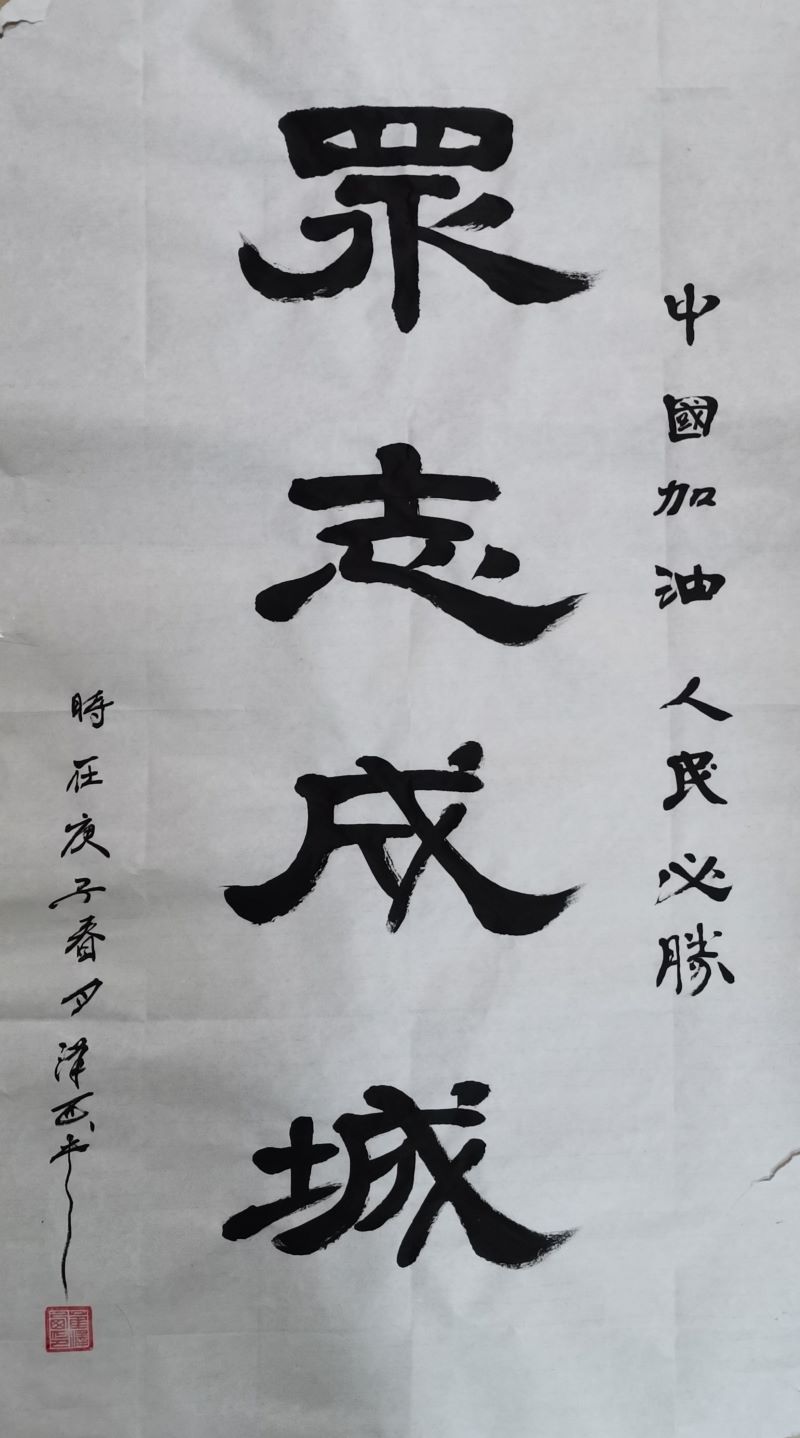 中國加油 人民必勝
眾志成城
時在庚子春月澤西书